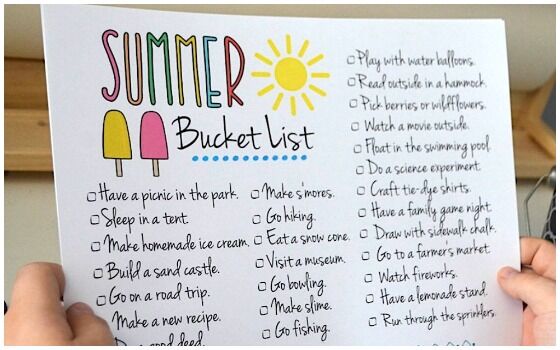 SUMMER
Bucket List
Have a picnic in the park.
Sleep in a tent.
Make homemade ice cream.
Build a sand castle.
Go on a road trip.
Make a new recipe.
good deed.
Make s'mores.
Go hiking.
Eat a snow cone.
Visit a museum.
Go bowling.
Make slime.
Go fishing.
Play with water balloons.
Read outside in a hammock.
Pick berries or wildflowers.
Watch a movie outside.
Float in the swimming pool.
Do a science experiment.
Craft tie-dye shirts.
Have a family game night.
Draw with sidewalk chalk.
Go to a farmer's market.
Watch fireworks.
Have a lemonade stand.
Run through the sprinklers.